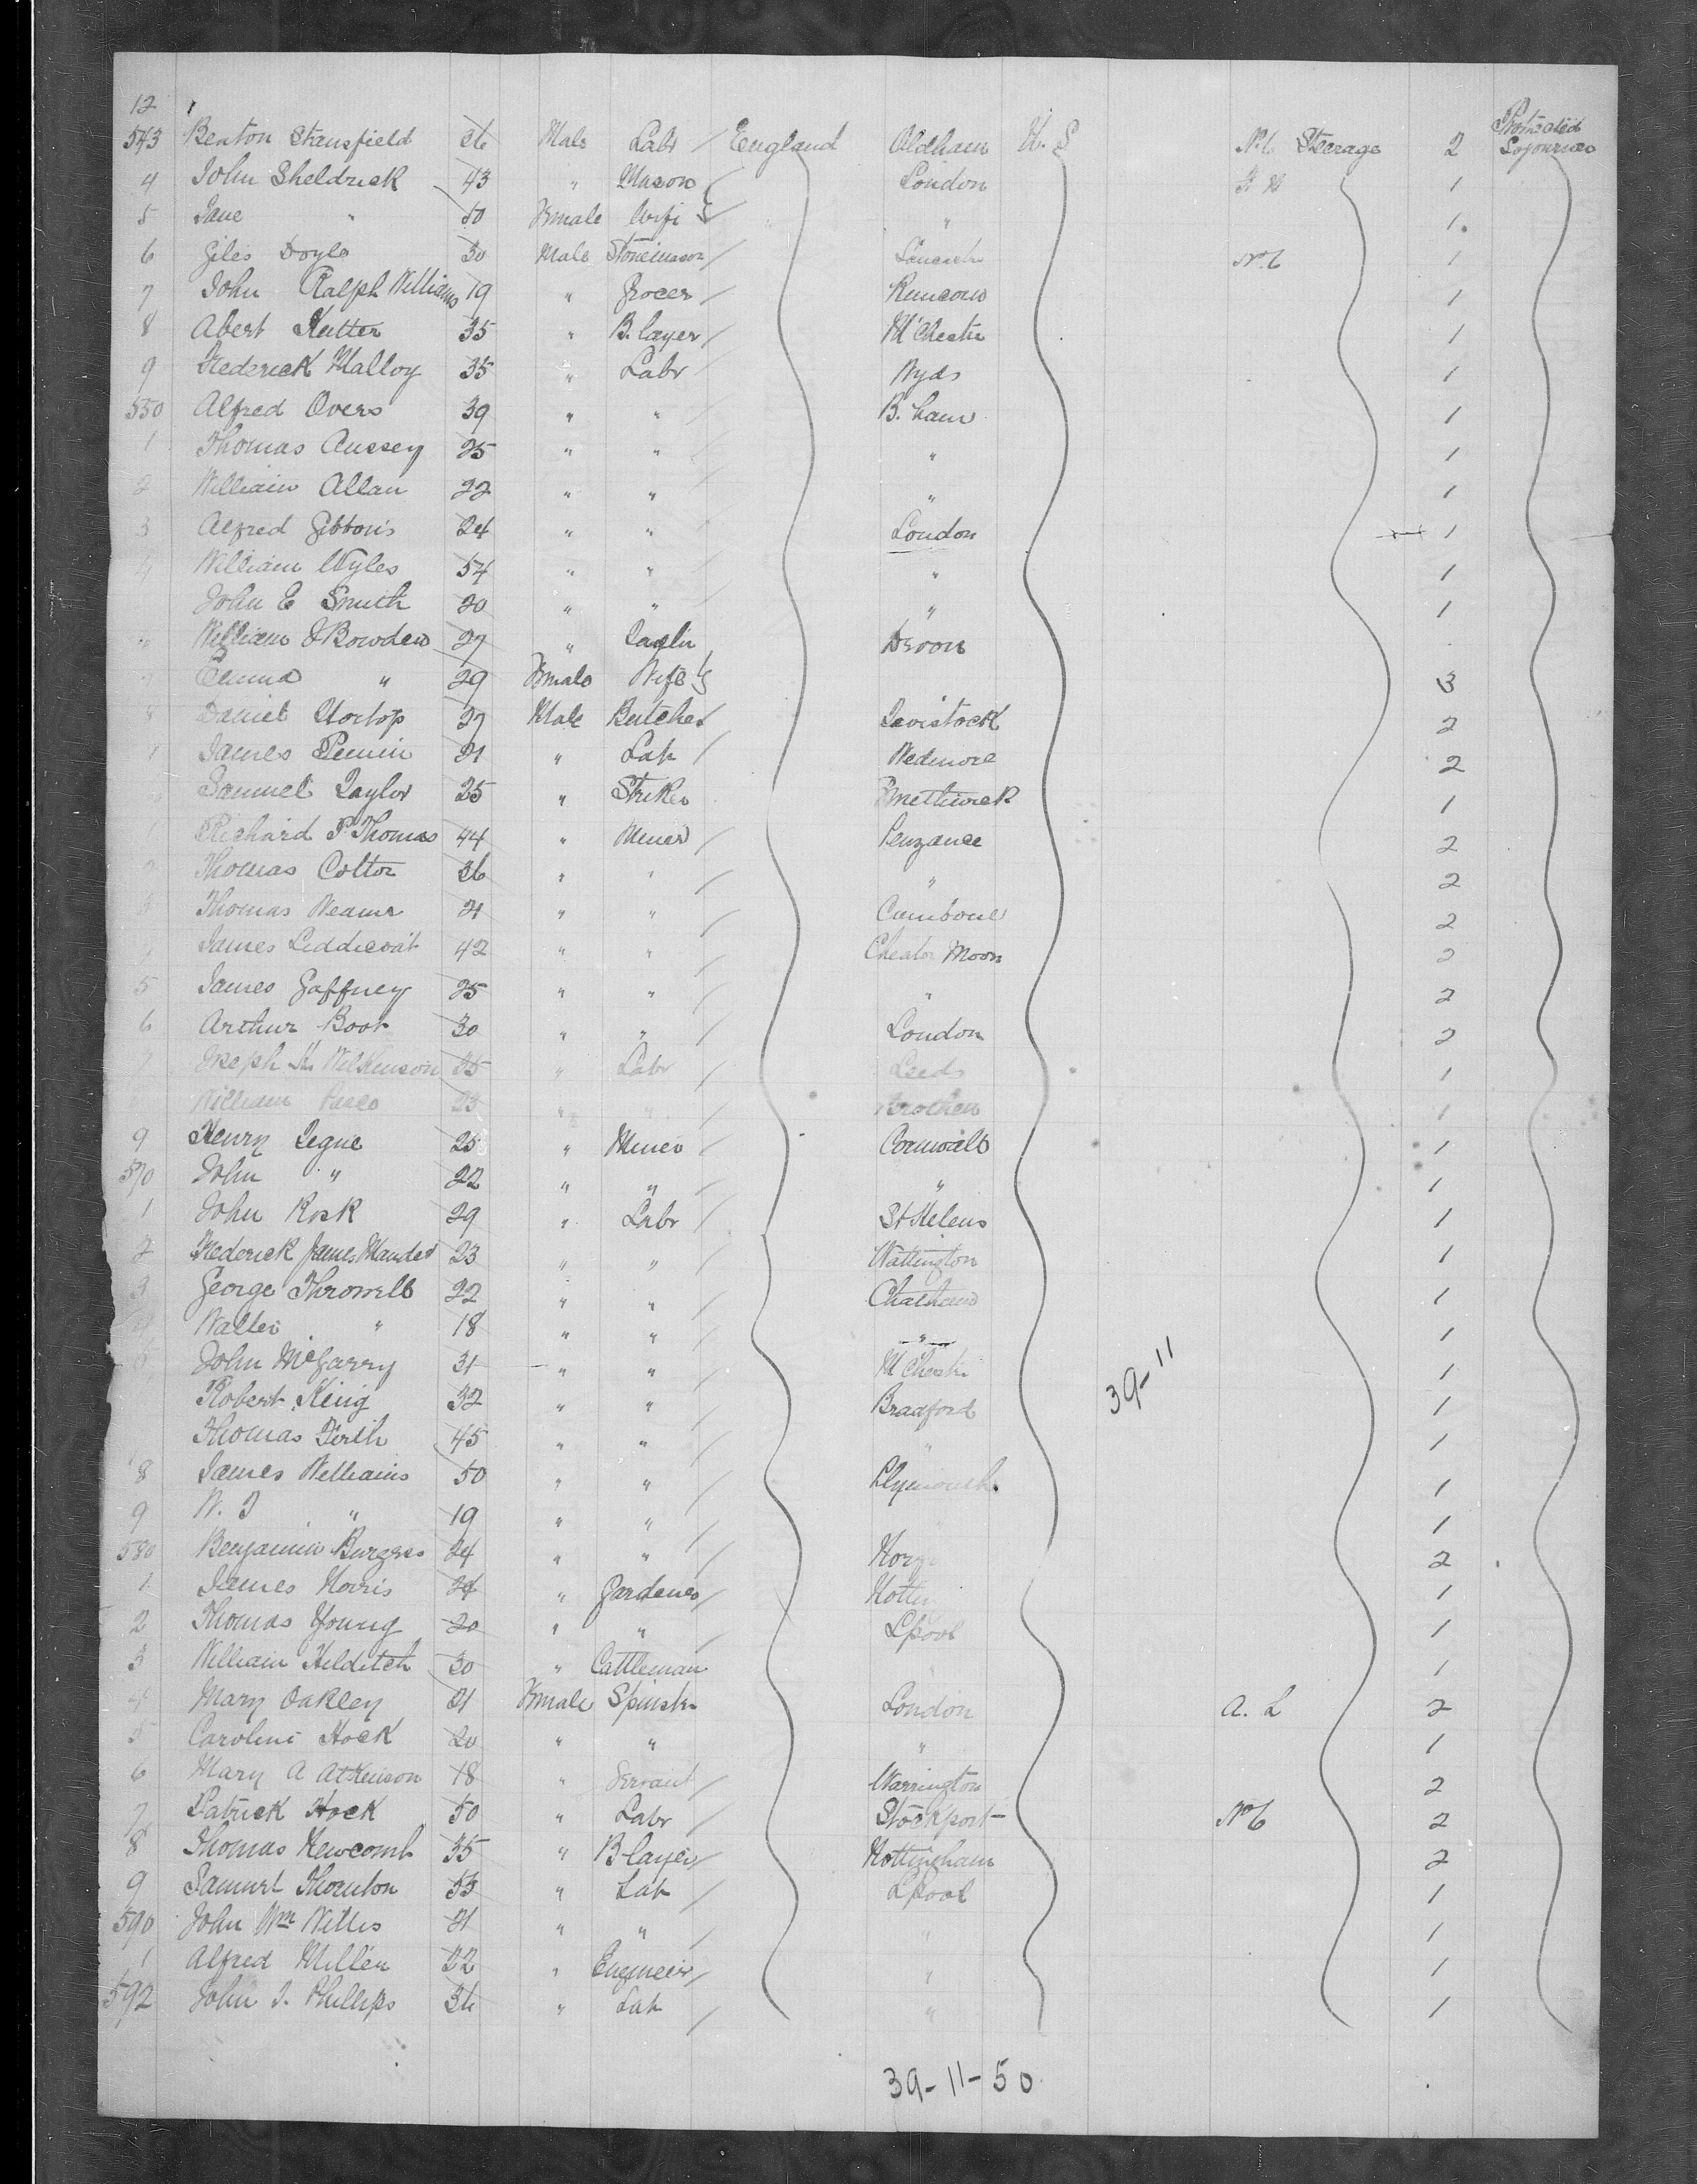 12
543 Benton Stansfield 36 Male Labr England Oldham U.S No 6 Steerage 2 Protracted Sojourner
4 John Sheldrick 43 " Mason London 1
5 Jane " 50 Female Wife " 1
6 Giles Doyle 30 Male Stonemason No 6 1
7 John Ralph Williams 19 " Grocer Runcorn 1
8 Abert Hutter 35 " B. layer M'Chester 1
9 Frederick Malloy 35 " Labr 1
550 Alfred Overs 39 " " B. ham 1
1 Thomas Aussey 25 " " " 1
2 William Allan 22 " " " 1
3 Alfred Gibbons 24 " " London 1
4 William Wyles 54 " " " 1
John E Smith 20 " " " 1
William J Bowden 27 " Devon
" 29 Female Wife 3
8 Daniel 27 Male Butcher Tavistock 2
James 21 " Lab Wedmore 2
Samuel Taylor 25 " Striker Smethwick 1
1 Richard P Thomas 44 " Miner Penzance 2
2 Thomas Coltor 36 " " " 2
3 Thomas 21 " " Cambone 2
James Liddicoat 42 " " Cheator Moor 2
5 James Gaffney 25 " " " 2
6 Arthur Boot 30 " " London 2
7 Joseph H. Wilkinson 35 " Labr Leeds 1
William 23 " " 1
9 Henry Tegue 25 " Miner Cornwall 1
570 John " 22 " " " 1
1 John Rosk 29 " Labr St Helens 1
2 Frederick James Mander 23 " " Wattington 1
3 George Throssell 22 " " Chatham 1
Walter " 18 " " " 1
5 John McGarry 31 " " M'Chester 1
39-11
Robert King 32 " " Bradford 1
Thomas Firth 45 " " " 1
8 James Williams 50 " " Plymouth 1
9 W. J " 19 " " 1
580 Benjamin Burgess 24 " " 2
1 James Harris 24 " Gardener 1
2 Thomas Young 20 " " L'pool 1
3 William Hilditch 30 " Cattleman 1
4 Mary Oakley 21 Female Spinster London A. L 2
5 Caroline Hock 20 " " " 1
6 Mary A Atkinson 18 " Servant Warrington 2
7 Patrick Hock 50 " Labr Stockport No 6 2
8 Thomas Newcomb 35 " B-layer Nottingham 2
9 Samuel Thornton 53 " Lab L'pool 1
590 John Wm Willis 21 " " " 1
1 Alfred Miller 32 " Engineer " 1
592 John J. Phillips 36 " Lab " 1
39-11-50